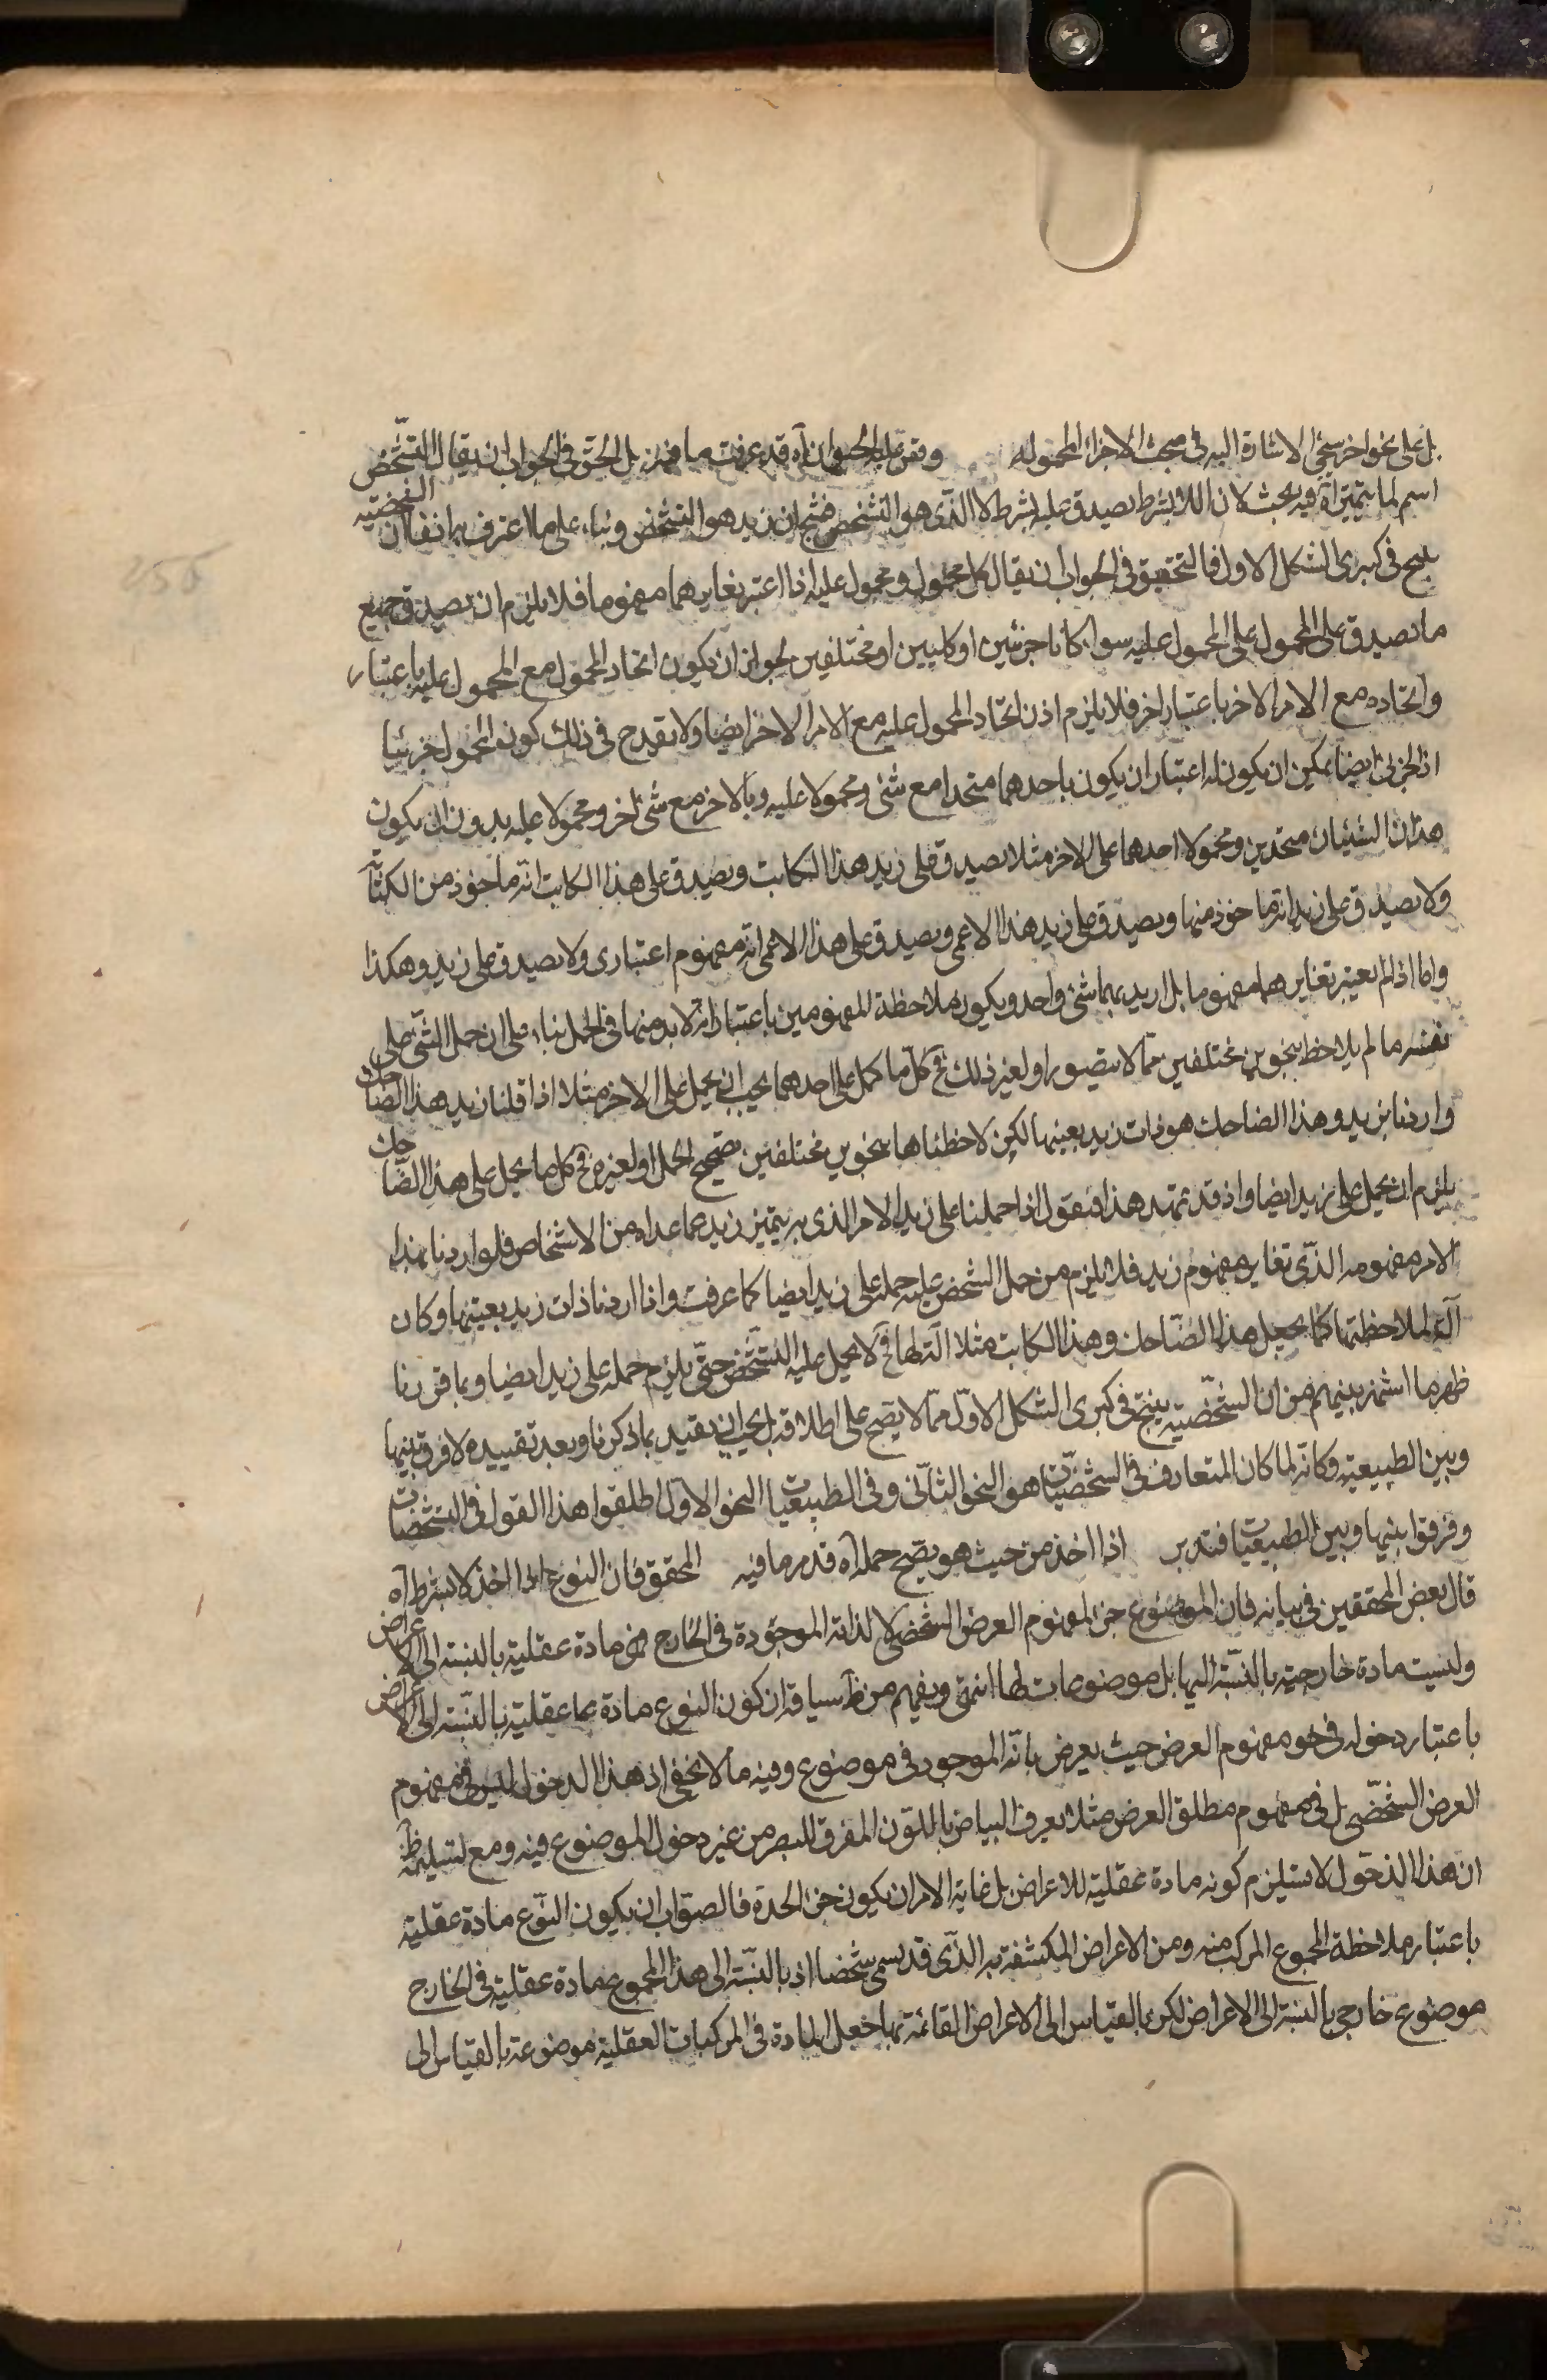 بل على نحو اخر سيجئ الاشارة اليه فى مبحث الاجزاء المحموله وقس عليه الحيوان آه قد عرفت ما فيه بل الحق فى الجواب ان يقال التشخص
اسم لما يتميز آه فيه بحث لان اللا بشرط يصدق عليه بشرط لا الذى هو التشخص فينتج ان زيد هو التشخص وبناء على ما اعترف به انفا ان الشخصية
ينتج فى كبرى الشكل الاول فالتحقيق فى الجواب ان يقال كل محمول ومحمول عليه اذا اعتبر تغايرهما مفهوما فلا يلزم ان يصدق جميع
ما يصدق على المحمول على المحمول عليه سواء كانا جزئيين او كليين او مختلفين لجواز ان يكون اتحاد المحمول مع المحمول عليه باعتبار
واتحاده مع الامر الاخر باعتبار اخر فلا يلزم اذن اتحاد المحمول عليه مع الامر الاخر ايضا ولا يقدح فى ذلك كون المحمول جزئيا
اذ الجزئى ايضا يمكن ان يكون له اعتباران يكون باحدهما متحدا مع شئ ومحمولا عليه وبالاخر مع شئ اخر ومحمولا عليه بدون ان يكون
هذان الشيئان متحدين ومحمولا احدهما على الاخر مثلا يصدق على زيد هذا الكاتب ويصدق على هذا الكاتب انه ماخوذ من الكتابة
ولا يصدق على زيد انه ماخوذ منها ويصدق على زيد هذا الاعمى ويصدق على هذا الاعمى انه مفهوم اعتبارى ولا يصدق على زيد وهكذا
واما اذا لم يعتبر تغايرهما مفهوما بل اريد بهما شئ واحد ويكون ملاحظة المفهومين باعتبار انه لا بد منها فى الحمل بناء على ان حمل الشئ على
نفسه ما لم يلاحظ بنحوين مختلفين مما لا يتصور او لغير ذلك فح كل ما يحمل على احدهما يجب ان يحمل على الاخر مثلا اذا قلنا زيد هذا الضاحك
واردنا بزيد وهذا الضاحك هو ذات زيد بعينها لكن لاحظناها بنحوين مختلفين تصحيح الحمل او لغيره فح كل ما يحمل على هذا الضاحك
يلزم ان يحمل على زيد ايضا واذ قد تمهد هذا فنقول اذا حملنا على زيد الامر الذى به يتميز زيد عما عداه من الاشخاص فلو اردنا بهذا
الامر مفهومه الذى تغاير مفهوم زيد فلا يلزم من حمل التشخص عليه حمله على زيد ايضا كما عرفت واذا اردنا ذات زيد بعينها وكان
آلة لملاحظتها كما يجعل هذا الضاحك وهذا الكاتب مثلا آلة لها فح لا يحمل عليه التشخص حتى يلزم حمله على زيد ايضا وبما قررنا
ظهر ما اشتهر بينهم من ان الشخصية ينتج فى كبرى الشكل الاول مما لا يصح على اطلاقه بل يجب ان يقيد بما ذكرنا وبعد تقييده لا فرق بينها
وبين الطبيعية وكانه لما كان المتعارف فى الشخصيات هو النحو الثانى وفى الطبيعيات النحو الاول اطلقوا هذا القول فى الشخصيات
وفرقوا بينها وبين الطبيعيات فتدبر اذا اخذ من حيث هو يصح حمله آه قد مر ما فيه المحقق فان النوع اذا اخذ لا بشرط آه
قال بعض المحققين فى بيانه فان الموضوع جزء لمفهوم العرض الشخصى لا لذاته الموجودة فى الخارج فهو مادة عقلية بالنسبة الى الاعراض
وليست مادة خارجية بالنسبة اليها بل موضوعات لها انتهى ويفهم من ظ سياقه ان كون النوع مادة عقلية بالنسبة الى الاعراض
باعتبار دخوله فى نحو مفهوم العرض حيث يعرض بانه الموجود فى موضوع وفيه ما لا يخفى اذ هذا الدخول ليس فى مفهوم
العرض الشخصى بل فى مفهوم مطلق العرض مثلا يعرف البياض باللون المفرق للبصر من غير دخول الموضوع فيه ومع تسليمه ظ
ان هذا الدخول لا يستلزم كونه مادة عقلية للاعراض بل غاية الامر ان يكون جزء الحد فالصواب ان يكون النوع مادة عقلية
باعتبار ملاحظة المجموع المركب منه ومن الاعراض المكتنفة به الذى قد يسمى شخصا اذ بالنسبة الى هذا المجموع مادة عقلية فى الخارج
موضوع خارجى بالنسبة الى الاعراض لكن بالقياس الى الاعراض القائمة بها جعل المادة فى المركبات العقلية موضوعة بالقياس الى